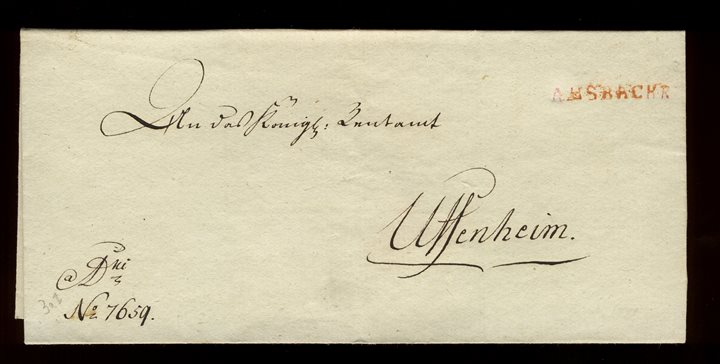 ANSBACH R
An das Königl: Rentamt
Uffenheim.
No 7659.